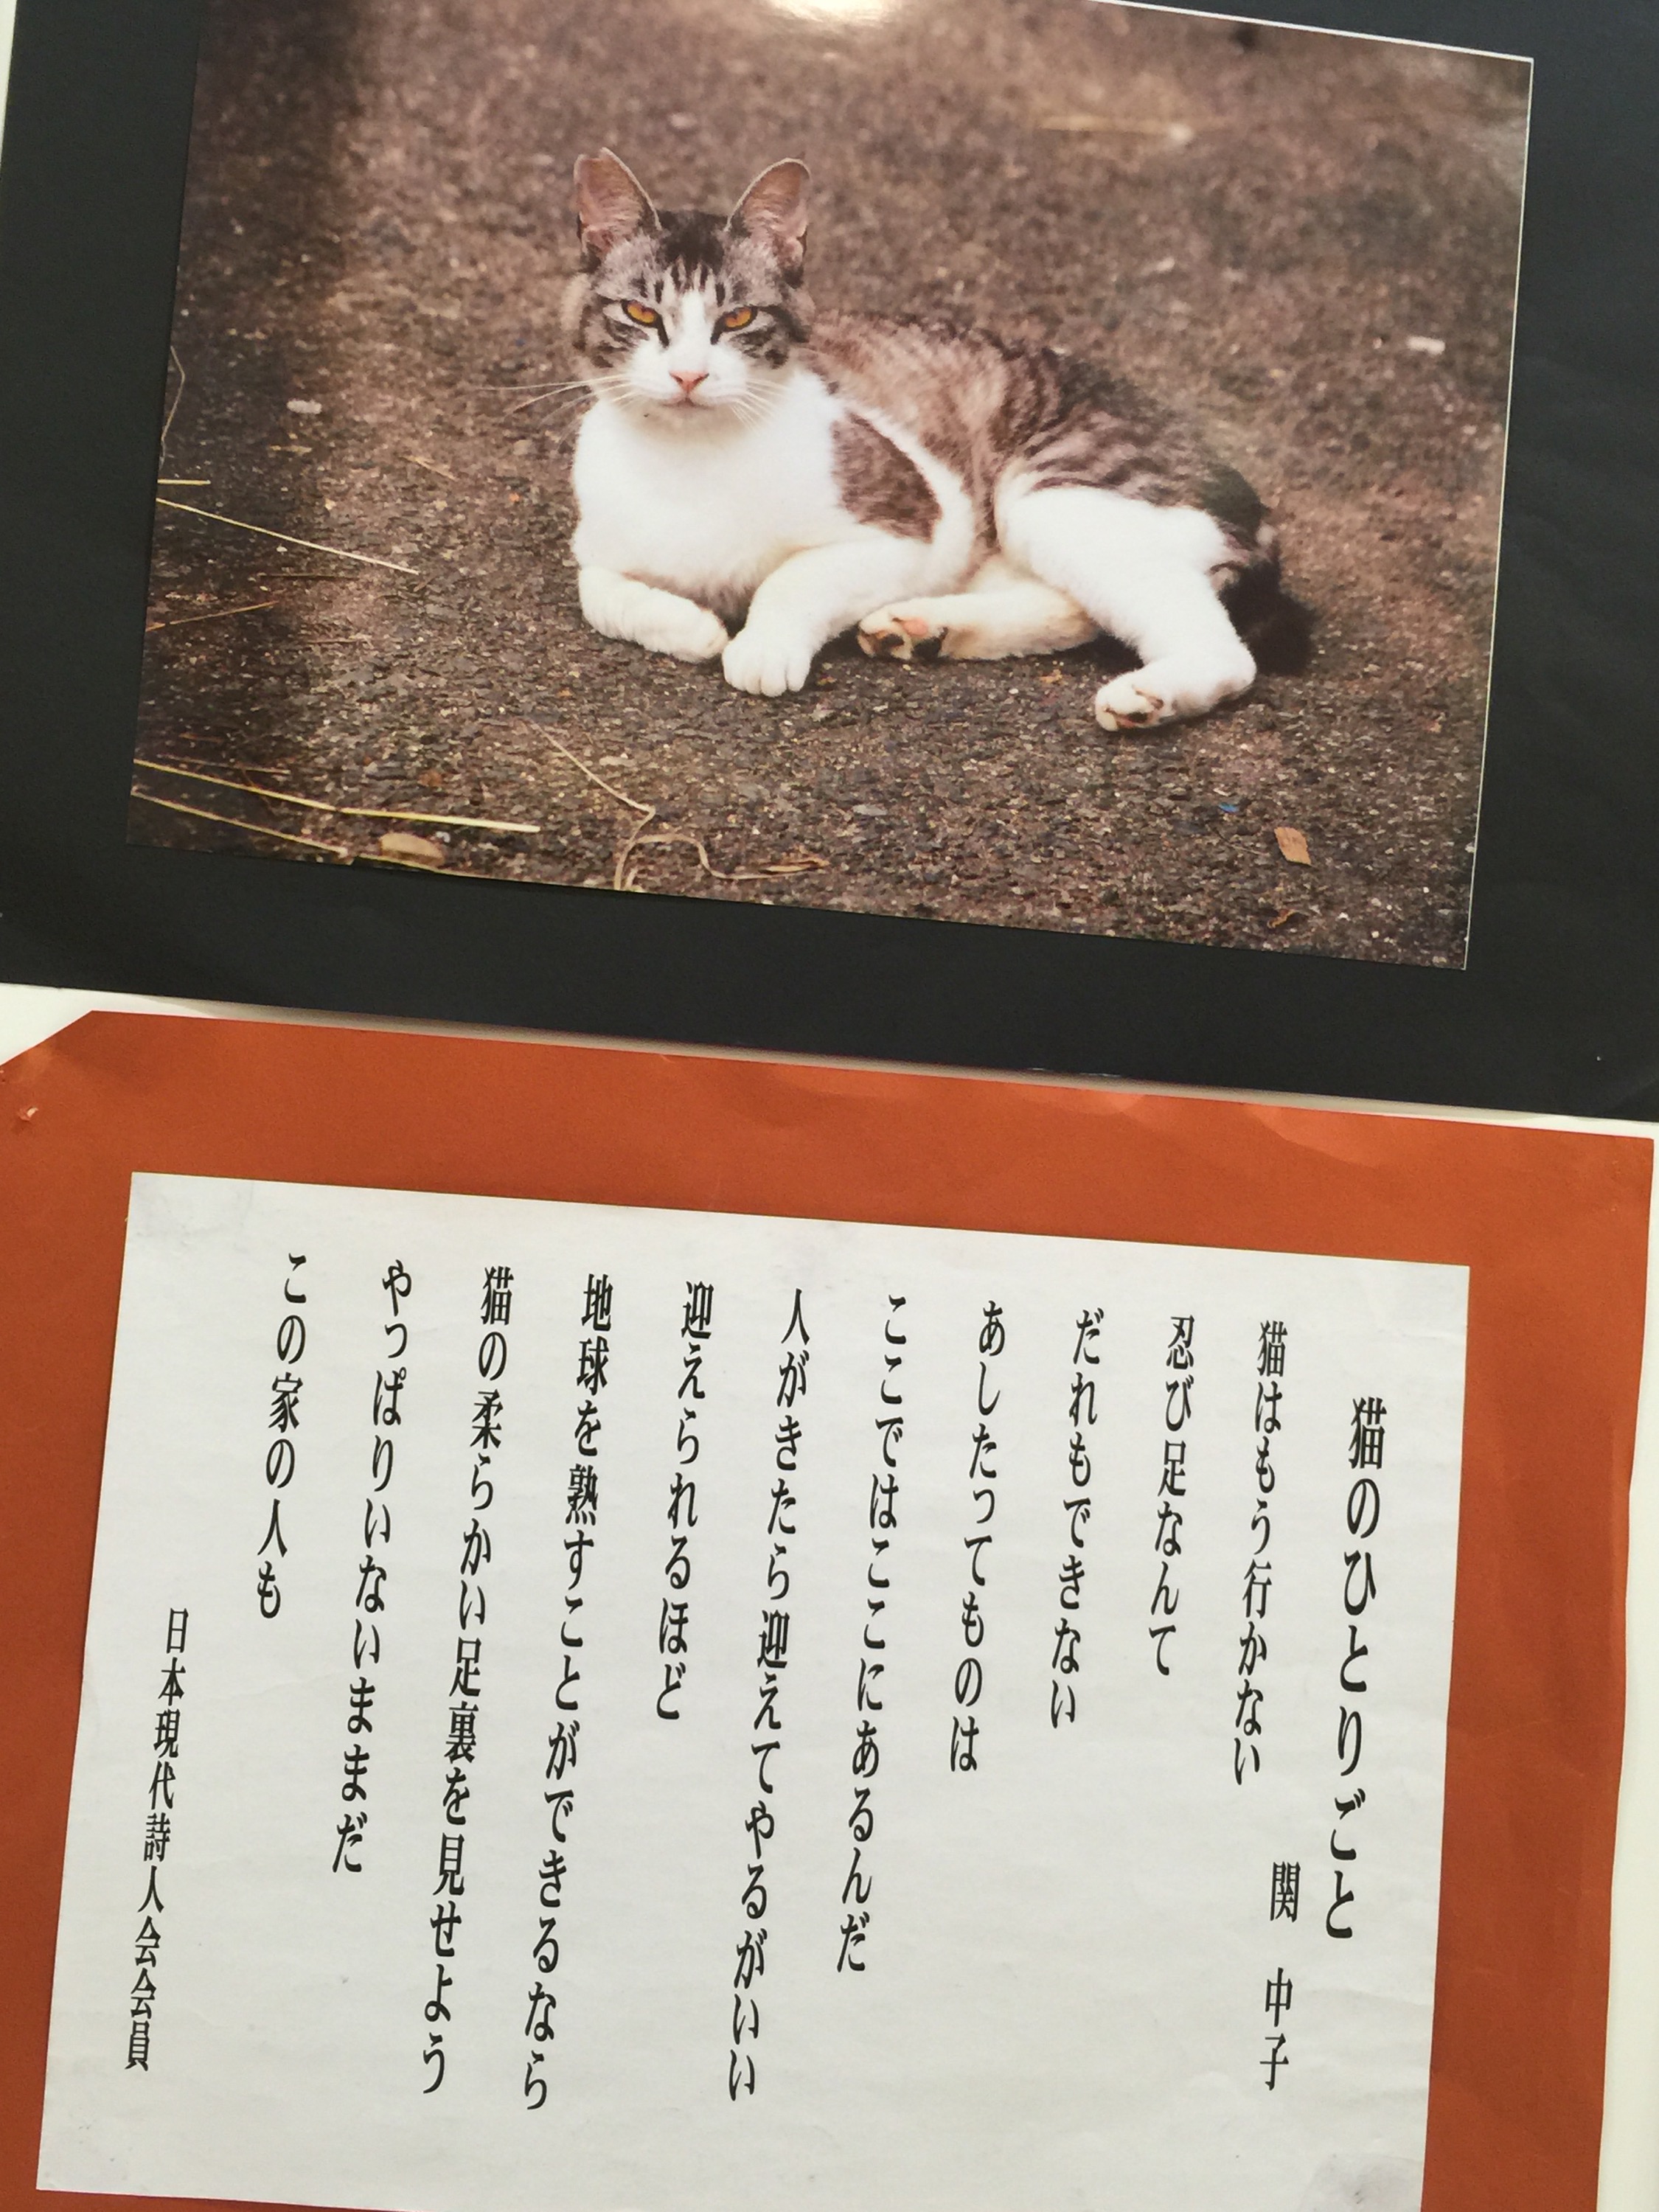 猫のひとりごと
関　中子
猫はもう行かない
忍び足なんて
だれもできない
あしたってものは
ここではここにあるんだ
人がきたら迎えてやるがいい
迎えられるほど
地球を熟すことができるなら
猫の柔らかい足裏を見せよう
やっぱりいないままだ
この家の人も
日本現代詩人会会員